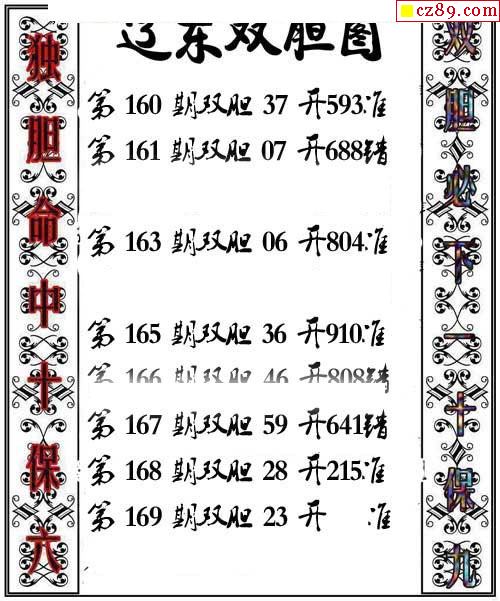 cz89.com
辽东双胆图
独胆命中十保六
第 160 期双胆 37 开593准
第 161 期双胆 07 开688错
第 163 期双胆 06 开804准
第 165 期双胆 36 开910准
第 166 期双胆 46 开808错
第 167 期双胆 59 开641错
第 168 期双胆 28 开215准
第 169 期双胆 23 开 准
双胆必下一十保九